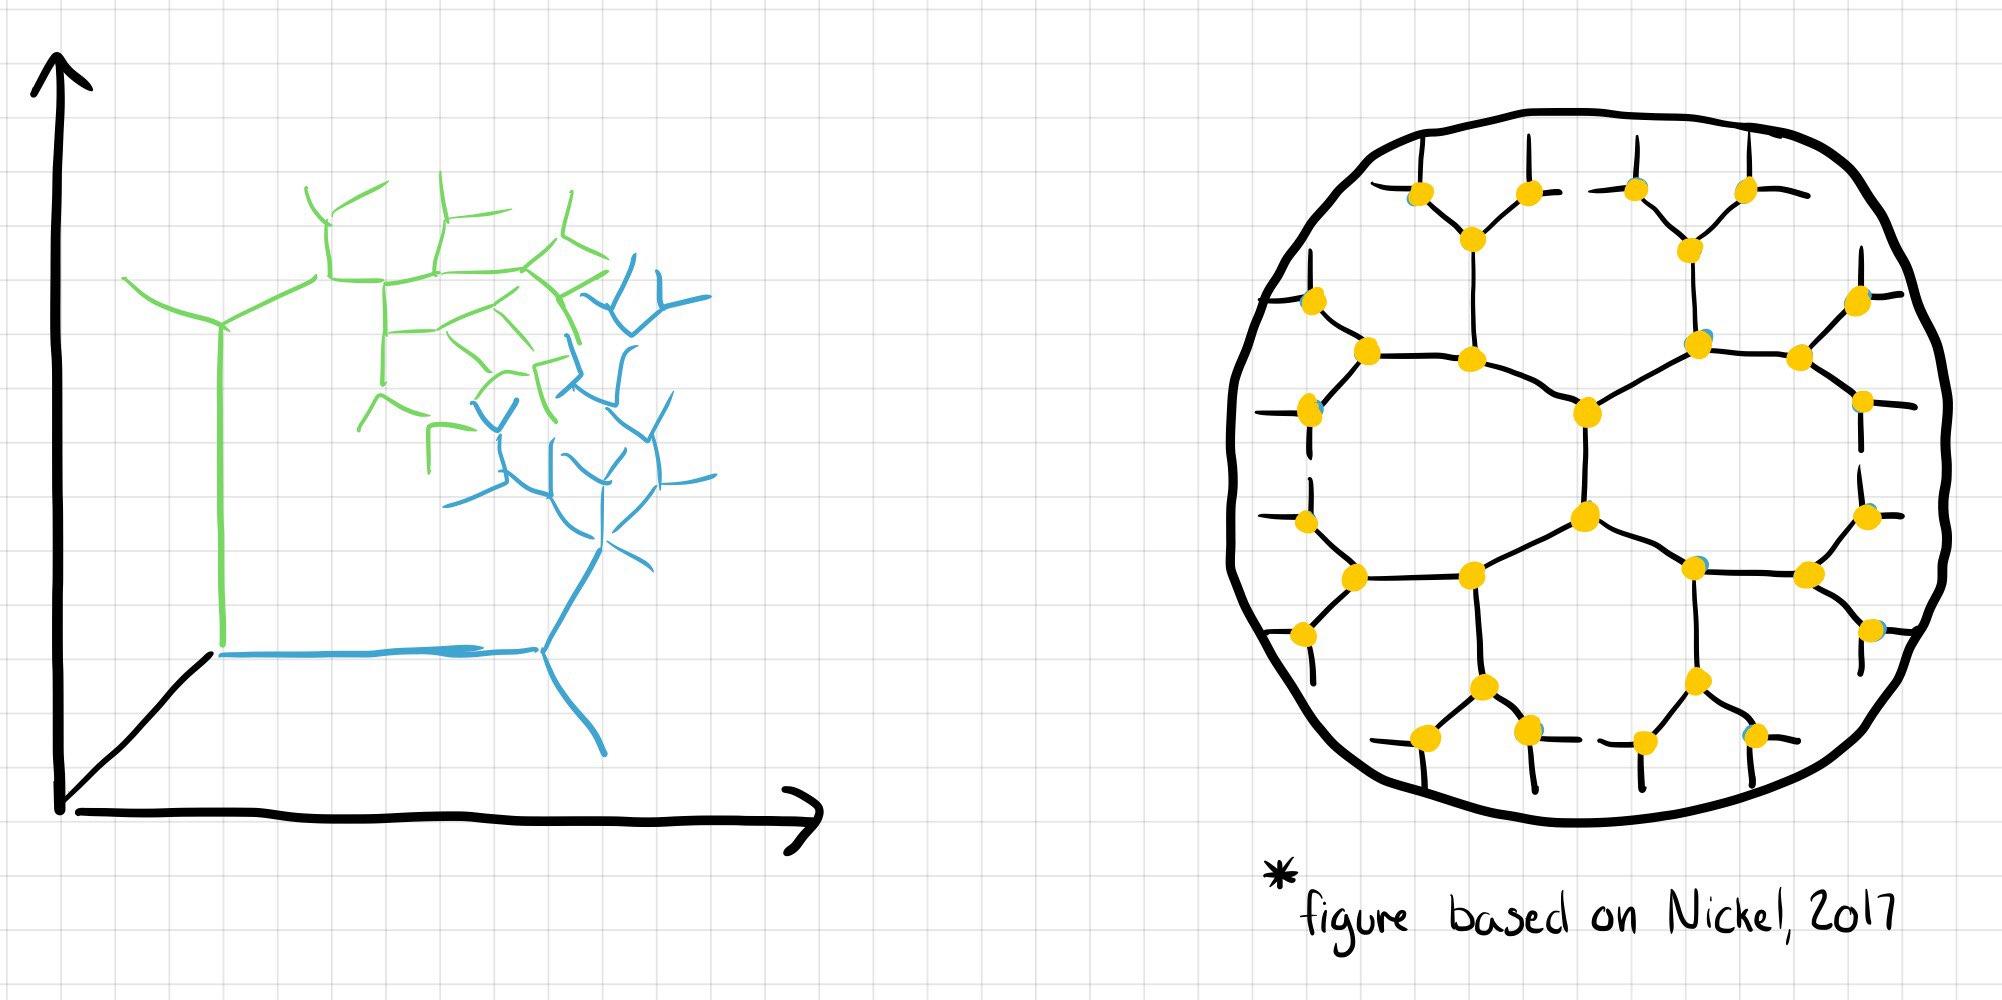 *figure based on Nickel, 2017